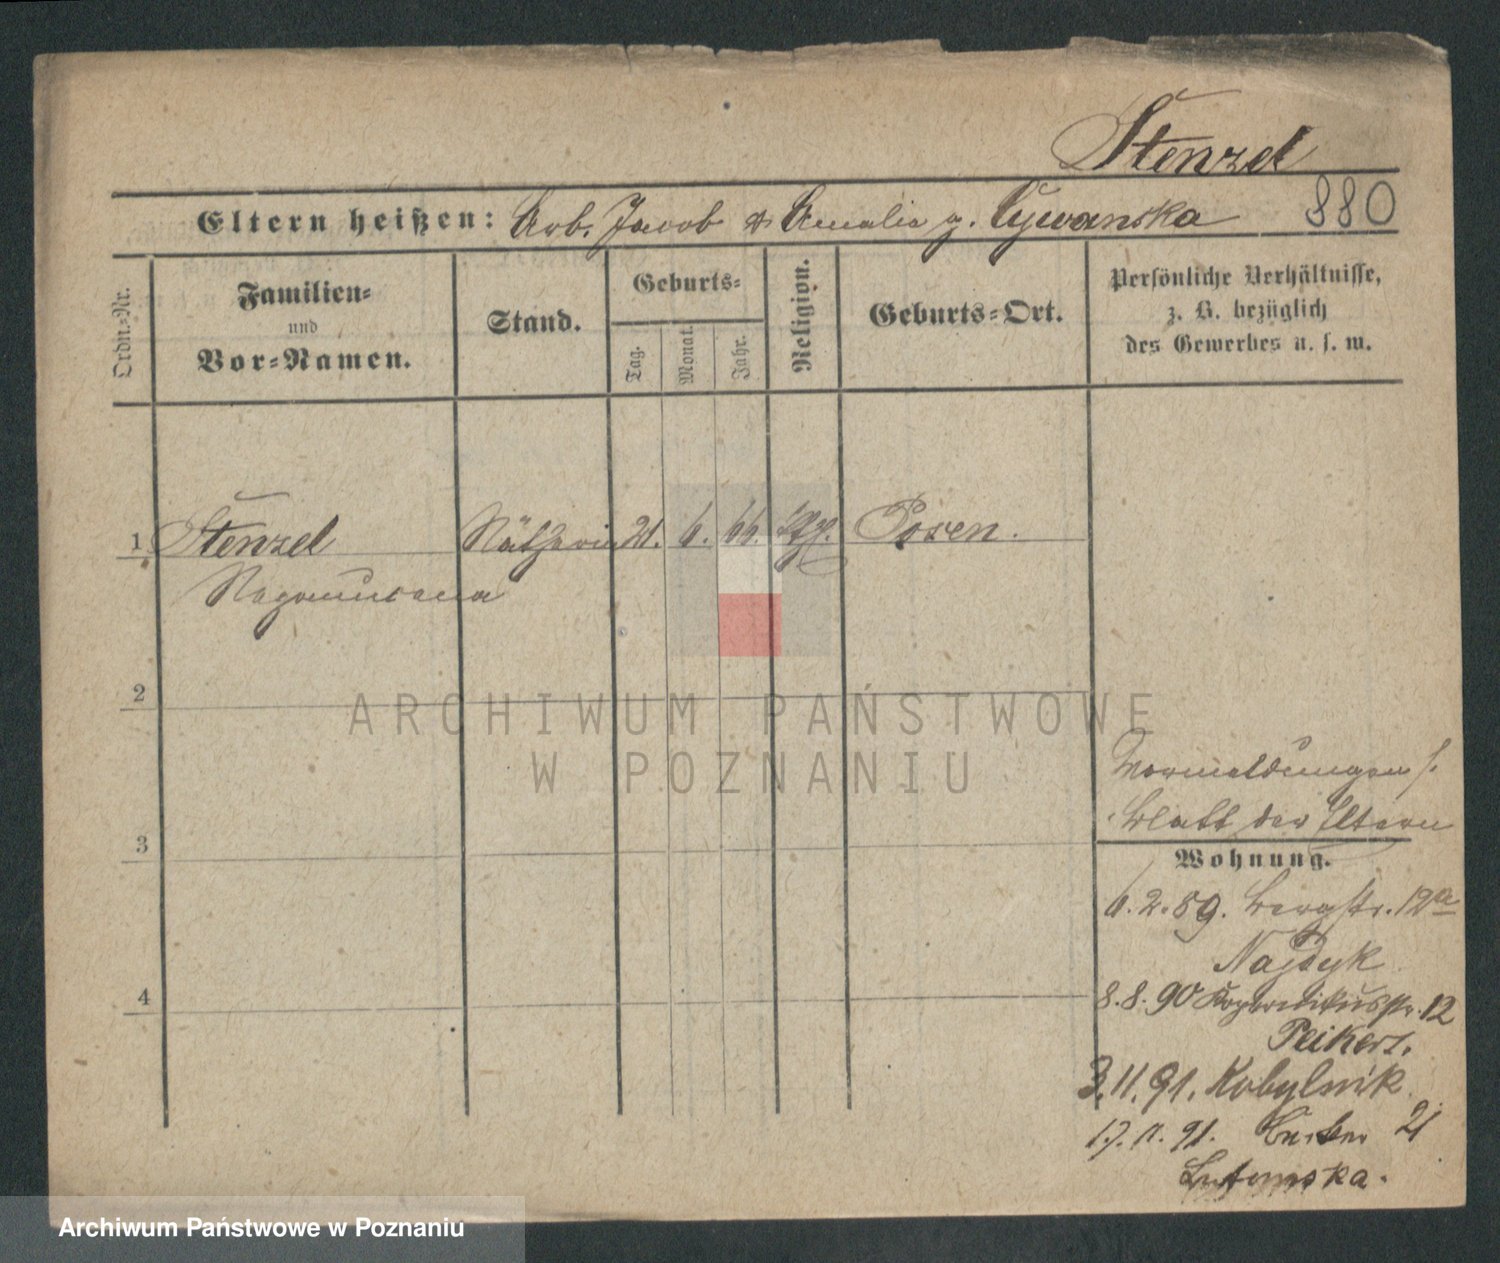 Stenzel
Eltern heißen: Arb. Jacob & Amalia g. Cywanska 880
Ordn.-Nr.
Familien-
und
Vor-Namen.
Stand.
Geburts-
Tag.
Monat.
Jahr.
Religion.
Geburts-Ort.
Persönliche Verhältnisse,
z. B. bezüglich
des Gewerbes u. s. w.
1 Stenzel Nätherin 21. 6. 66. Posen.
2
ARCHIWUM PAŃSTWOWE
W POZNANIU
Vormeldungen s.
Blatt der Eltern
3
Wohnung.
6.2.89. Bergstr. 12a
Najdyk
4
8.8.90 Kopernikusstr. 12
Peikert.
3.11.91. Kobylnik
17.11.91. 21
Archiwum Państwowe w Poznaniu